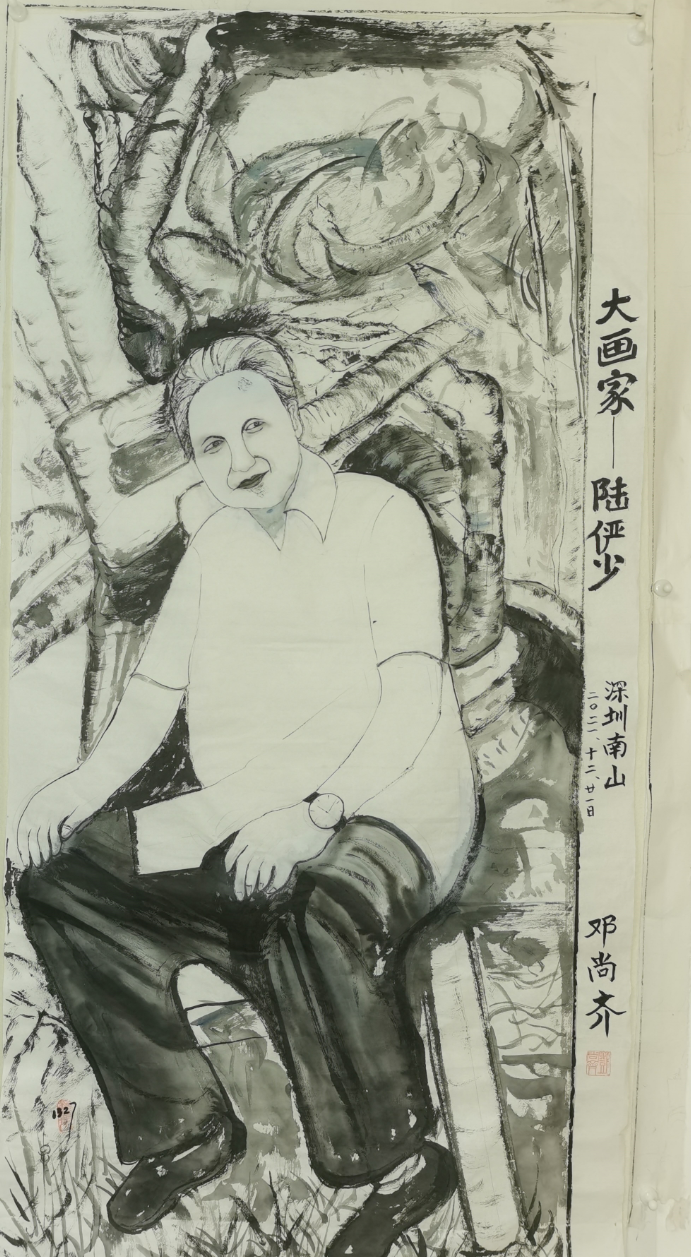 大画家—陆俨少
深圳南山
二〇二一、十二、廿一日
邓尚齐
1327